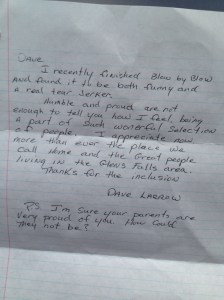 Dave,
I recently finished Blow by Blow
and found it to be both funny and
a real tear jerker.
Humble and proud are not
enough to tell you how I feel, being
a part of such waterful selection
of people. I appreciate now
more than ever the place we
call home and the Great people
living in the Glens Falls area.
Thanks for the inclusion
Dave LaBrow
P.S. I'm sure your parents are
very proud of you. How could
they not be!